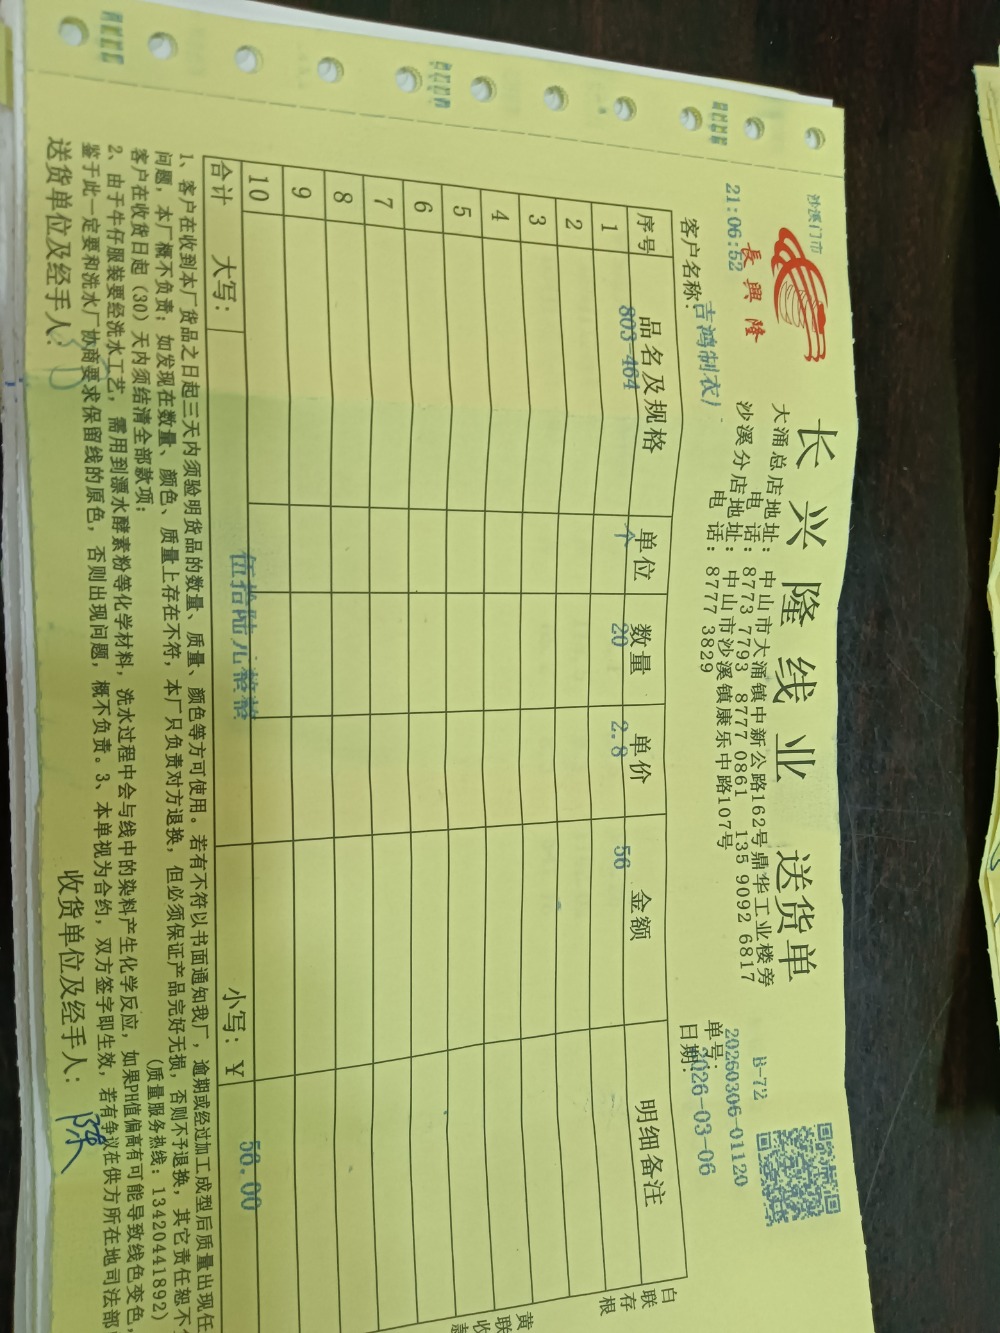 沙溪门市
21:06:52
長興隆
长兴隆线业 送货单
大涌总店地址： 中山市大涌镇中新公路162号鼎华工业楼旁
电 话： 8773 7793 8777 0861 135 9092 6817
沙溪分店地址： 中山市沙溪镇康乐中路107号
电 话： 8777 3829
B-72
单号： 20260306-01120
客户名称： 吉鸿制衣厂
日期： 2026-03-06
序号 品名及规格 单位 数量 单价 金额 明细备注
1 803-464 个 20 2.8 56
2
3
4
5
6
7
8
9
10
合计 大写： 伍拾陆元整 小写：￥ 56.00
白联存根
黄联收
1、客户在收到本厂货品之日起三天内须验明货品的数量、质量、颜色等方可使用。若有不符以书面通知我厂，逾期或经过加工成型后质量出现任
问题，本厂概不负责；如发现在数量、颜色、质量上存在不符，本厂只负责对方退换，但必须保证产品完好无损，否则不予退换，其它责任恕不
客户在收货日起（30）天内须结清全部款项； （质量服务热线：13420441892）
2、由于牛仔服装要经洗水工艺，需用到漂水酵素粉等化学材料，洗水过程中会与线中的染料产生化学反应，如果PH值偏高有可能导致线色变色，
鉴于此一定要和洗水厂协商要求保留线的原色，否则出现问题，概不负责。3、本单视为合约，双方签字即生效，若有争议在供方所在地司法部
送货单位及经手人： 收货单位及经手人： 陈